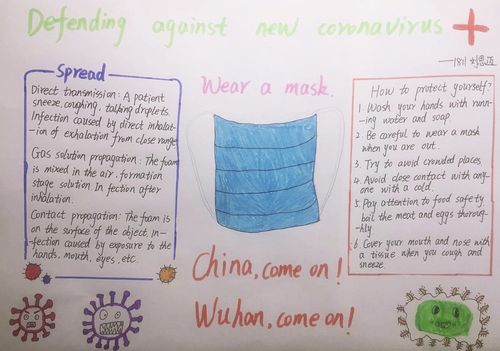 Defending against new coronavirus
——1811 刘思迈
Spread
Direct transmission: A patient
sneeze, coughing, talking droplets.
Infection caused by direct inhalat-
-ion of exhalation from close range
Gas solution propagation: The foam
is mixed in the air. formation
stage solution. In fection after
inhalation.
Contact propagation: The foam is
on the surface of the object. In-
-fection caused by exposure to the
hands, mouth, eyes, etc.
Wear a mask.
China, come on!
Wuhan, come on!
How to protect yourself?
1. Wash your hands with runn-
-ing water and soap
2. Be careful to wear a mask
when you are out.
3. Try to avoid crowded places
4. Avoid close contact with any-
one with a cold.
5. Pay attention to food safety,
boil the meat and eggs thorou-
-ghly
6. Cover your mouth and nose with
a tissue when you cough and
sneeze.